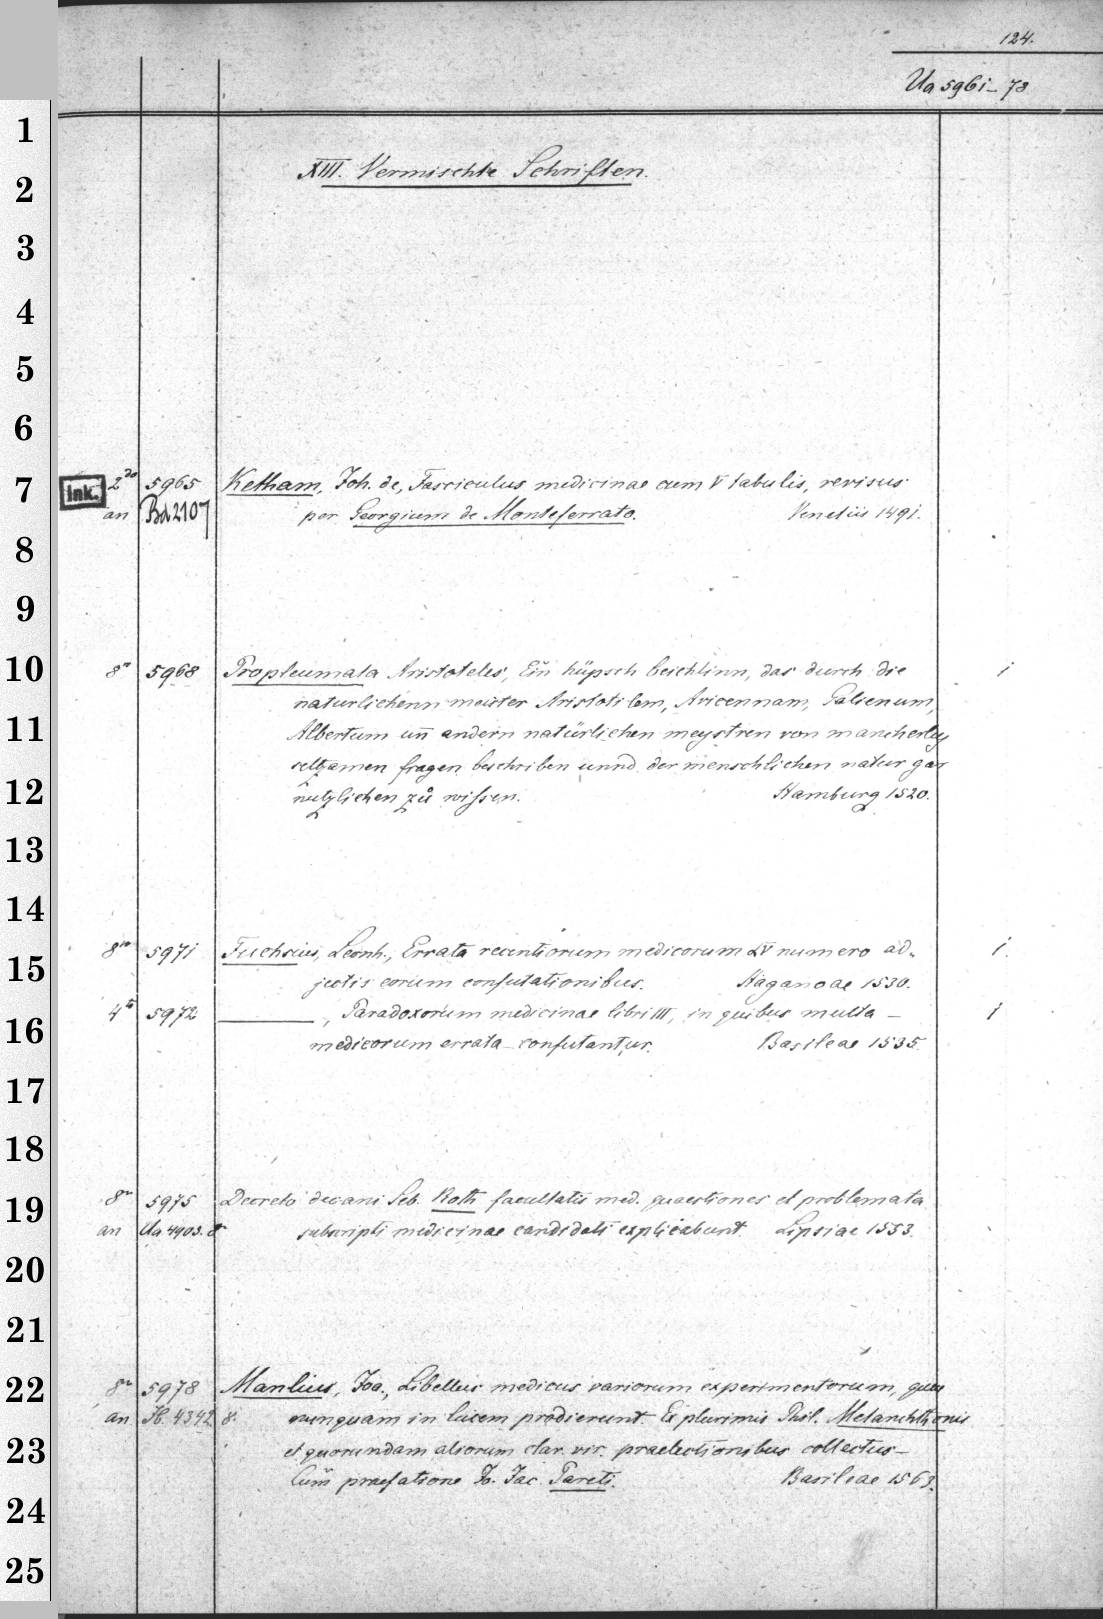 124.
Ua 5961–78
XIII. Vermischte Schriften.
Ink. 2do 5965 Ketham, Joh. de, Fasciculus medicinae cum V tabulis, revisus
an Bd 2107 per Georgium de Monteferrato. Venetiis 1491.
8o 5968 Propleumata Aristoteles, Ein hüpsch beichlinn, das durch die 1
naturlichenn meister Aristotilem, Avicennam, Galienum,
Albertum un̄ andern natürlichen meystren von mancherley
seltzamen fragen beschriben unnd der menschlichen natur gar
nutzlichen zů wissen. Hamburg 1520.
8vo 5971 Fuchsius, Leonh., Errata recentiorum medicorum LX numero ad- 1.
jectis eorum confutationibus. Haganoae 1530.
4to 5972 ———, Paradoxorum medicinae libri III, in quibus multa – 1
medicorum errata – confutantur. Basileae 1535.
8o 5975 Decreto decani Seb. Roth facultatis med. quaestiones et problemata
an Ua 4903. subscripti medicinae candidati explicabunt. Lipsiae 1553.
8o 5978 Manlius, Joa., Libellus medicus variorum experimentorum, quae
an 4342 8. nunquam in lucem prodierunt. Ex plurimis Phil. Melanchthonis
et quorundam aliorum clar. vir. praelectionibus collectus –
Cum̄ praefatione Jo. Jac. Pareti. Basileae 1563.
1
2
3
4
5
6
7
8
9
10
11
12
13
14
15
16
17
18
19
20
21
22
23
24
25